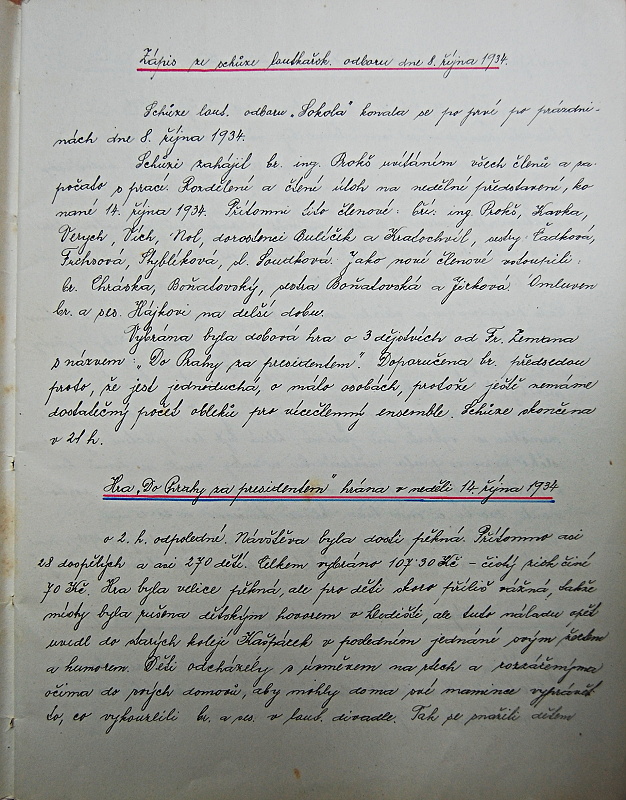 Zápis ze schůze loutkářsk. odboru dne 8. října 1934.
Schůze lout. odboru „Sokola" konala se po prvé po prázdni-
nách dne 8. října 1934.
Schůzi zahájil br. ing. Prokš uvítáním všech členů a za-
počato s prací. Rozdělení a čtení úloh na nedělní představení, ko
nané 14. října 1934. Přítomni tito členové: bří: ing. Prokš, Kavka,
Verych, Vích, Nol, dorostenci Bulíček a Kratochvíl, sestry: Řádková,
Frehsová, Stýblíková, sl. Soudková. Jako nové členové vstoupili:
br. Chráska, Boňatovský, sestra Boňatovská a Jirková. Omluven
br. a ses. Hájkovi na delší dobu.
Vybrána byla dobová hra o 3 dějstvích od Fr. Zemana
s názvem: „Do Prahy za presidentem". Doporučena br. předsedou
proto, že jest jednoduchá, o málo osobách, protože ještě nemáme
dostatečný počet obleků pro vícečlenný ensemble. Schůze skončena
v 21 h.
Hra „Do Prahy za presidentem" hrána v neděli 14. října 1934
o 2. h. odpoledné. Návštěva byla dosti pěkná. Přítomno asi
28 dospělých a asi 270 dětí. Celkem vybráno 107·30 Kč – čistý zisk činí
70 Kč. Hra byla velice pěkná, ale pro děti skoro příliš vážná, takže
místy byla rušena dětským hovorem v hledišti, ale tuto náladu opět
uvedl do starých kolejí Kašpárek v posledním jednání svým
a humorem. Děti odcházely s úsměvem na rtech a rozzářenýma
očima do svých domovů, aby mohly doma své mamince vyprávět
to, co vykouzlili br. a ses. v lout. divadle. Tak se snažili dětem